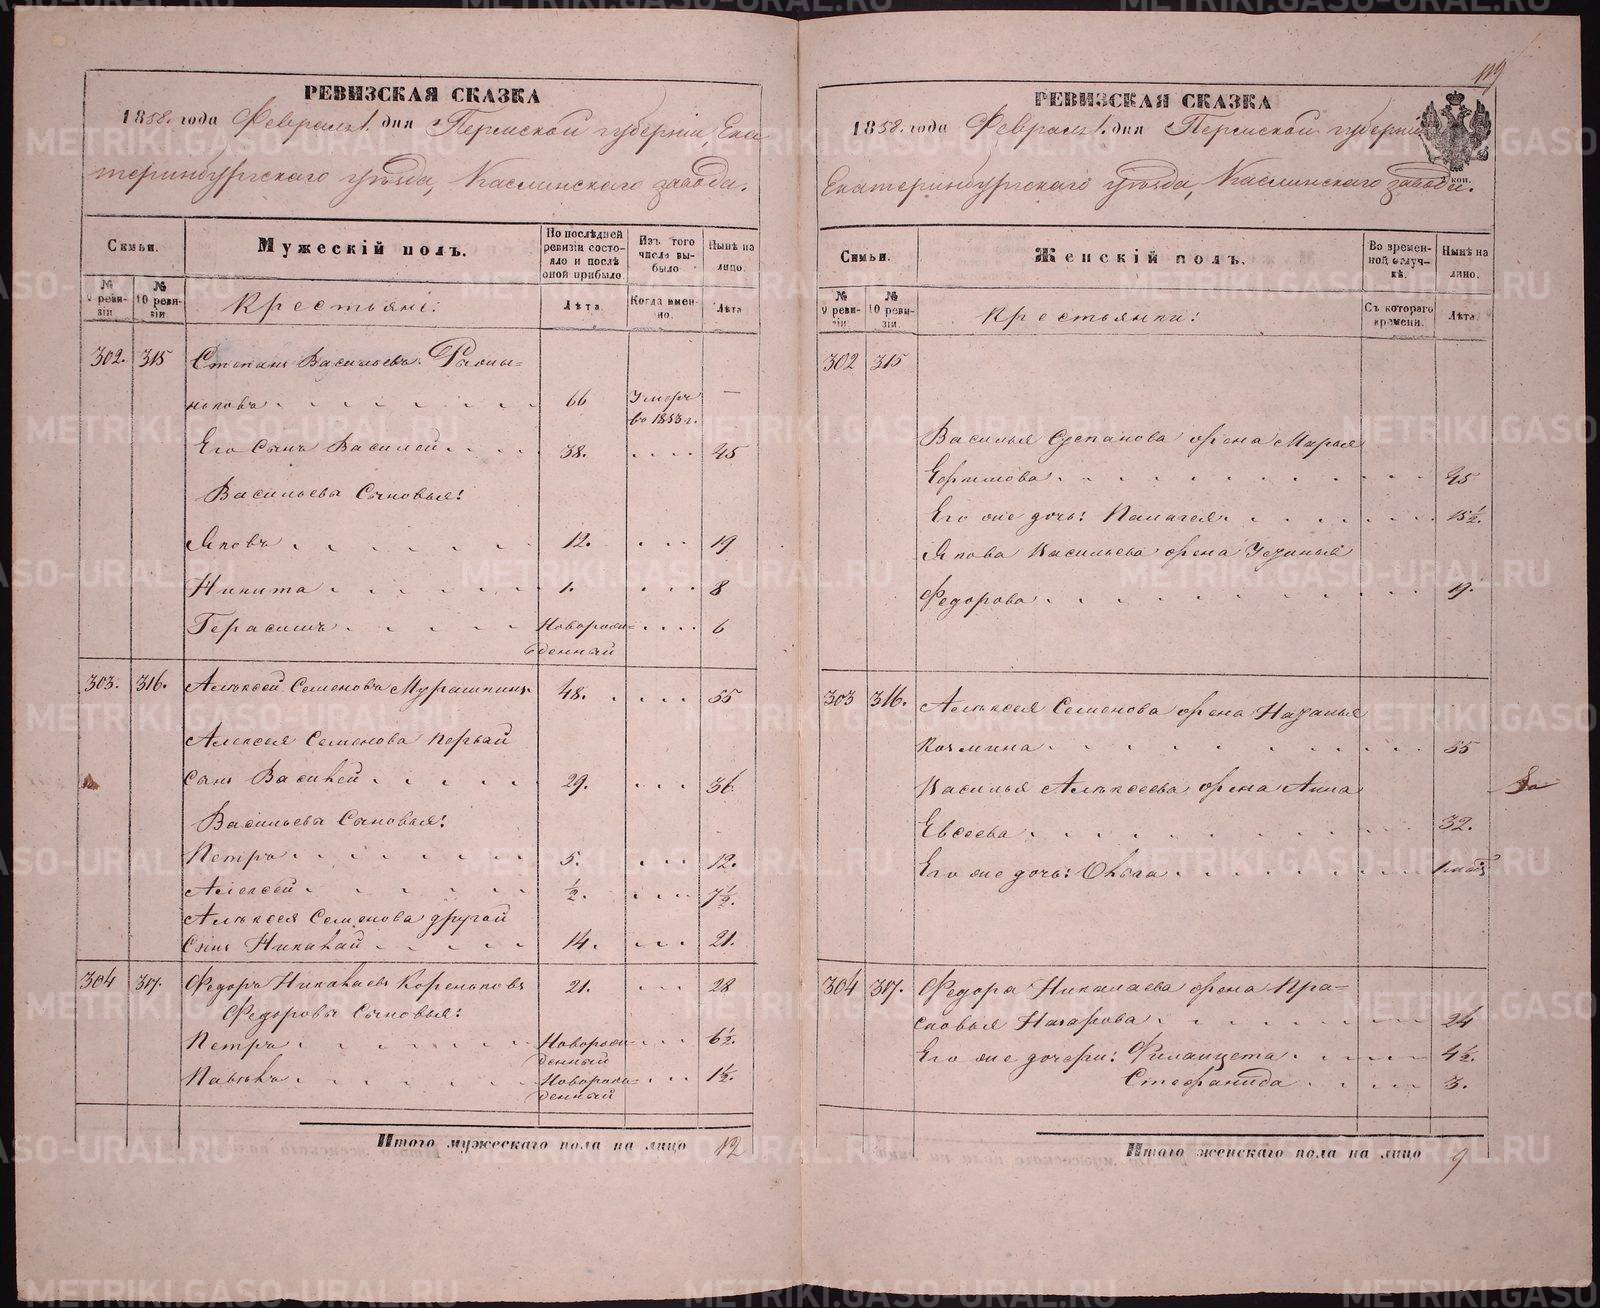 119
РЕВИЗСКАЯ СКАЗКА
1858. года Февраля 1. дня Пермской губерніи, Ека
теринбургскаго уѣзда, Каслинскаго завода.
Семьи.
Мужескій полъ.
По послѣдней ревизіи состояло и послѣ оной прибыло.
Изъ того числа выбыло
Нынѣ на лицо.
№ 9 ревизіи
№ 10 ревизіи
Крестьяне:
Лѣта
Когда именно.
Лѣта
302. 315 Степанъ Васильевъ
66 Умеръ —
во 1853 г.
Его сынъ Василей 38. 45
Васильева Сыновья:
Яковъ 12. 19
Никита 1. 8
Герасимъ Новорож- 6
денный
303. 316. Алексей Семеновъ Мурашкинъ 48. 55
Алексея Семенова первый
сынъ Василей 29. 36.
Васильева Сыновья:
Петръ 5. 12.
Алексей ½. 7½.
Алексея Семенова другой
Сынъ Николай 14. 21.
304 317. Федоръ Николаевъ Кореньковъ 21. 28
Федоровы Сыновья:
Петръ Новорож- 6½.
денный
Павелъ Новорож- 1½.
денный
Итого мужескаго пола на лицо 12
РЕВИЗСКАЯ СКАЗКА
1858. года Февраля 1. дня Пермской губерніи
Екатеринбургскаго уѣзда, Каслинскаго завода.
коп.
Семьи.
Женскій полъ.
Во временной отлучкѣ.
Нынѣ на лицо.
№ 9 ревизіи
№ 10 ревизіи.
Крестьянки:
Съ котораго времени.
Лѣта.
302 315
Василья Степанова жена Марья
Ефимова 45
Его же дочь: Палагея 15½.
Якова Васильева жена Устинья
Федорова 19.
303 316. Алексея Семенова жена Наталья
Козмина 55
Василья Алексеева жена Анна
Евсеева 32.
Его же дочь: Ольга
304 317. Федора Николаева жена Пра-
сковья Назарова 24
Его же дочери: 4½.
Стефанида 3.
Итого женскаго пола на лицо 9
METRIKI.GASO-URAL.RU